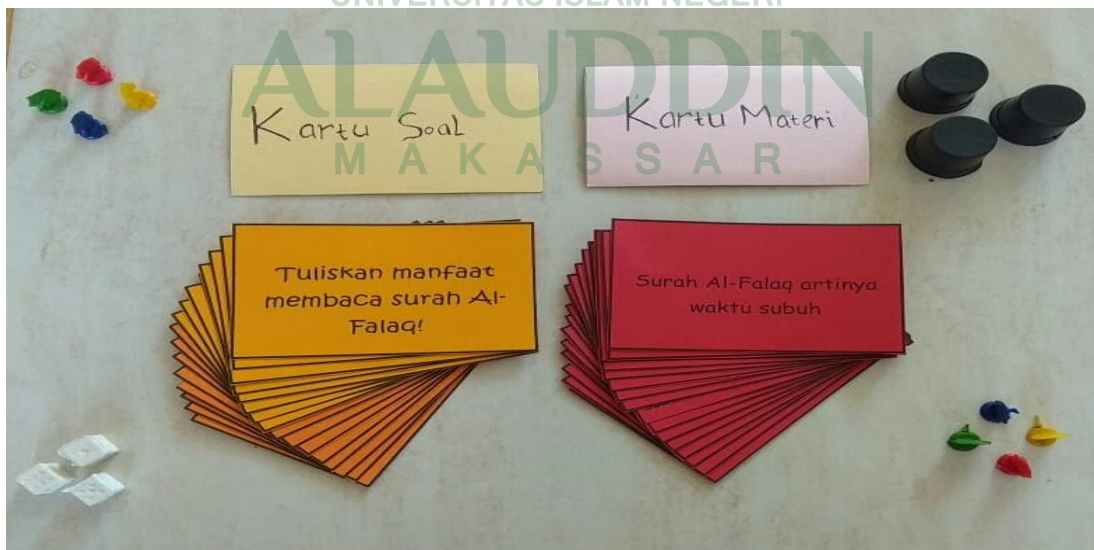 UNIVERSITAS ISLAM NEGERI
ALAUDDIN
MAKASSAR
Kartu Soal
Kartu Materi
Tuliskan manfaat
membaca surah Al-
Falaq!
Surah Al-Falaq artinya
waktu subuh